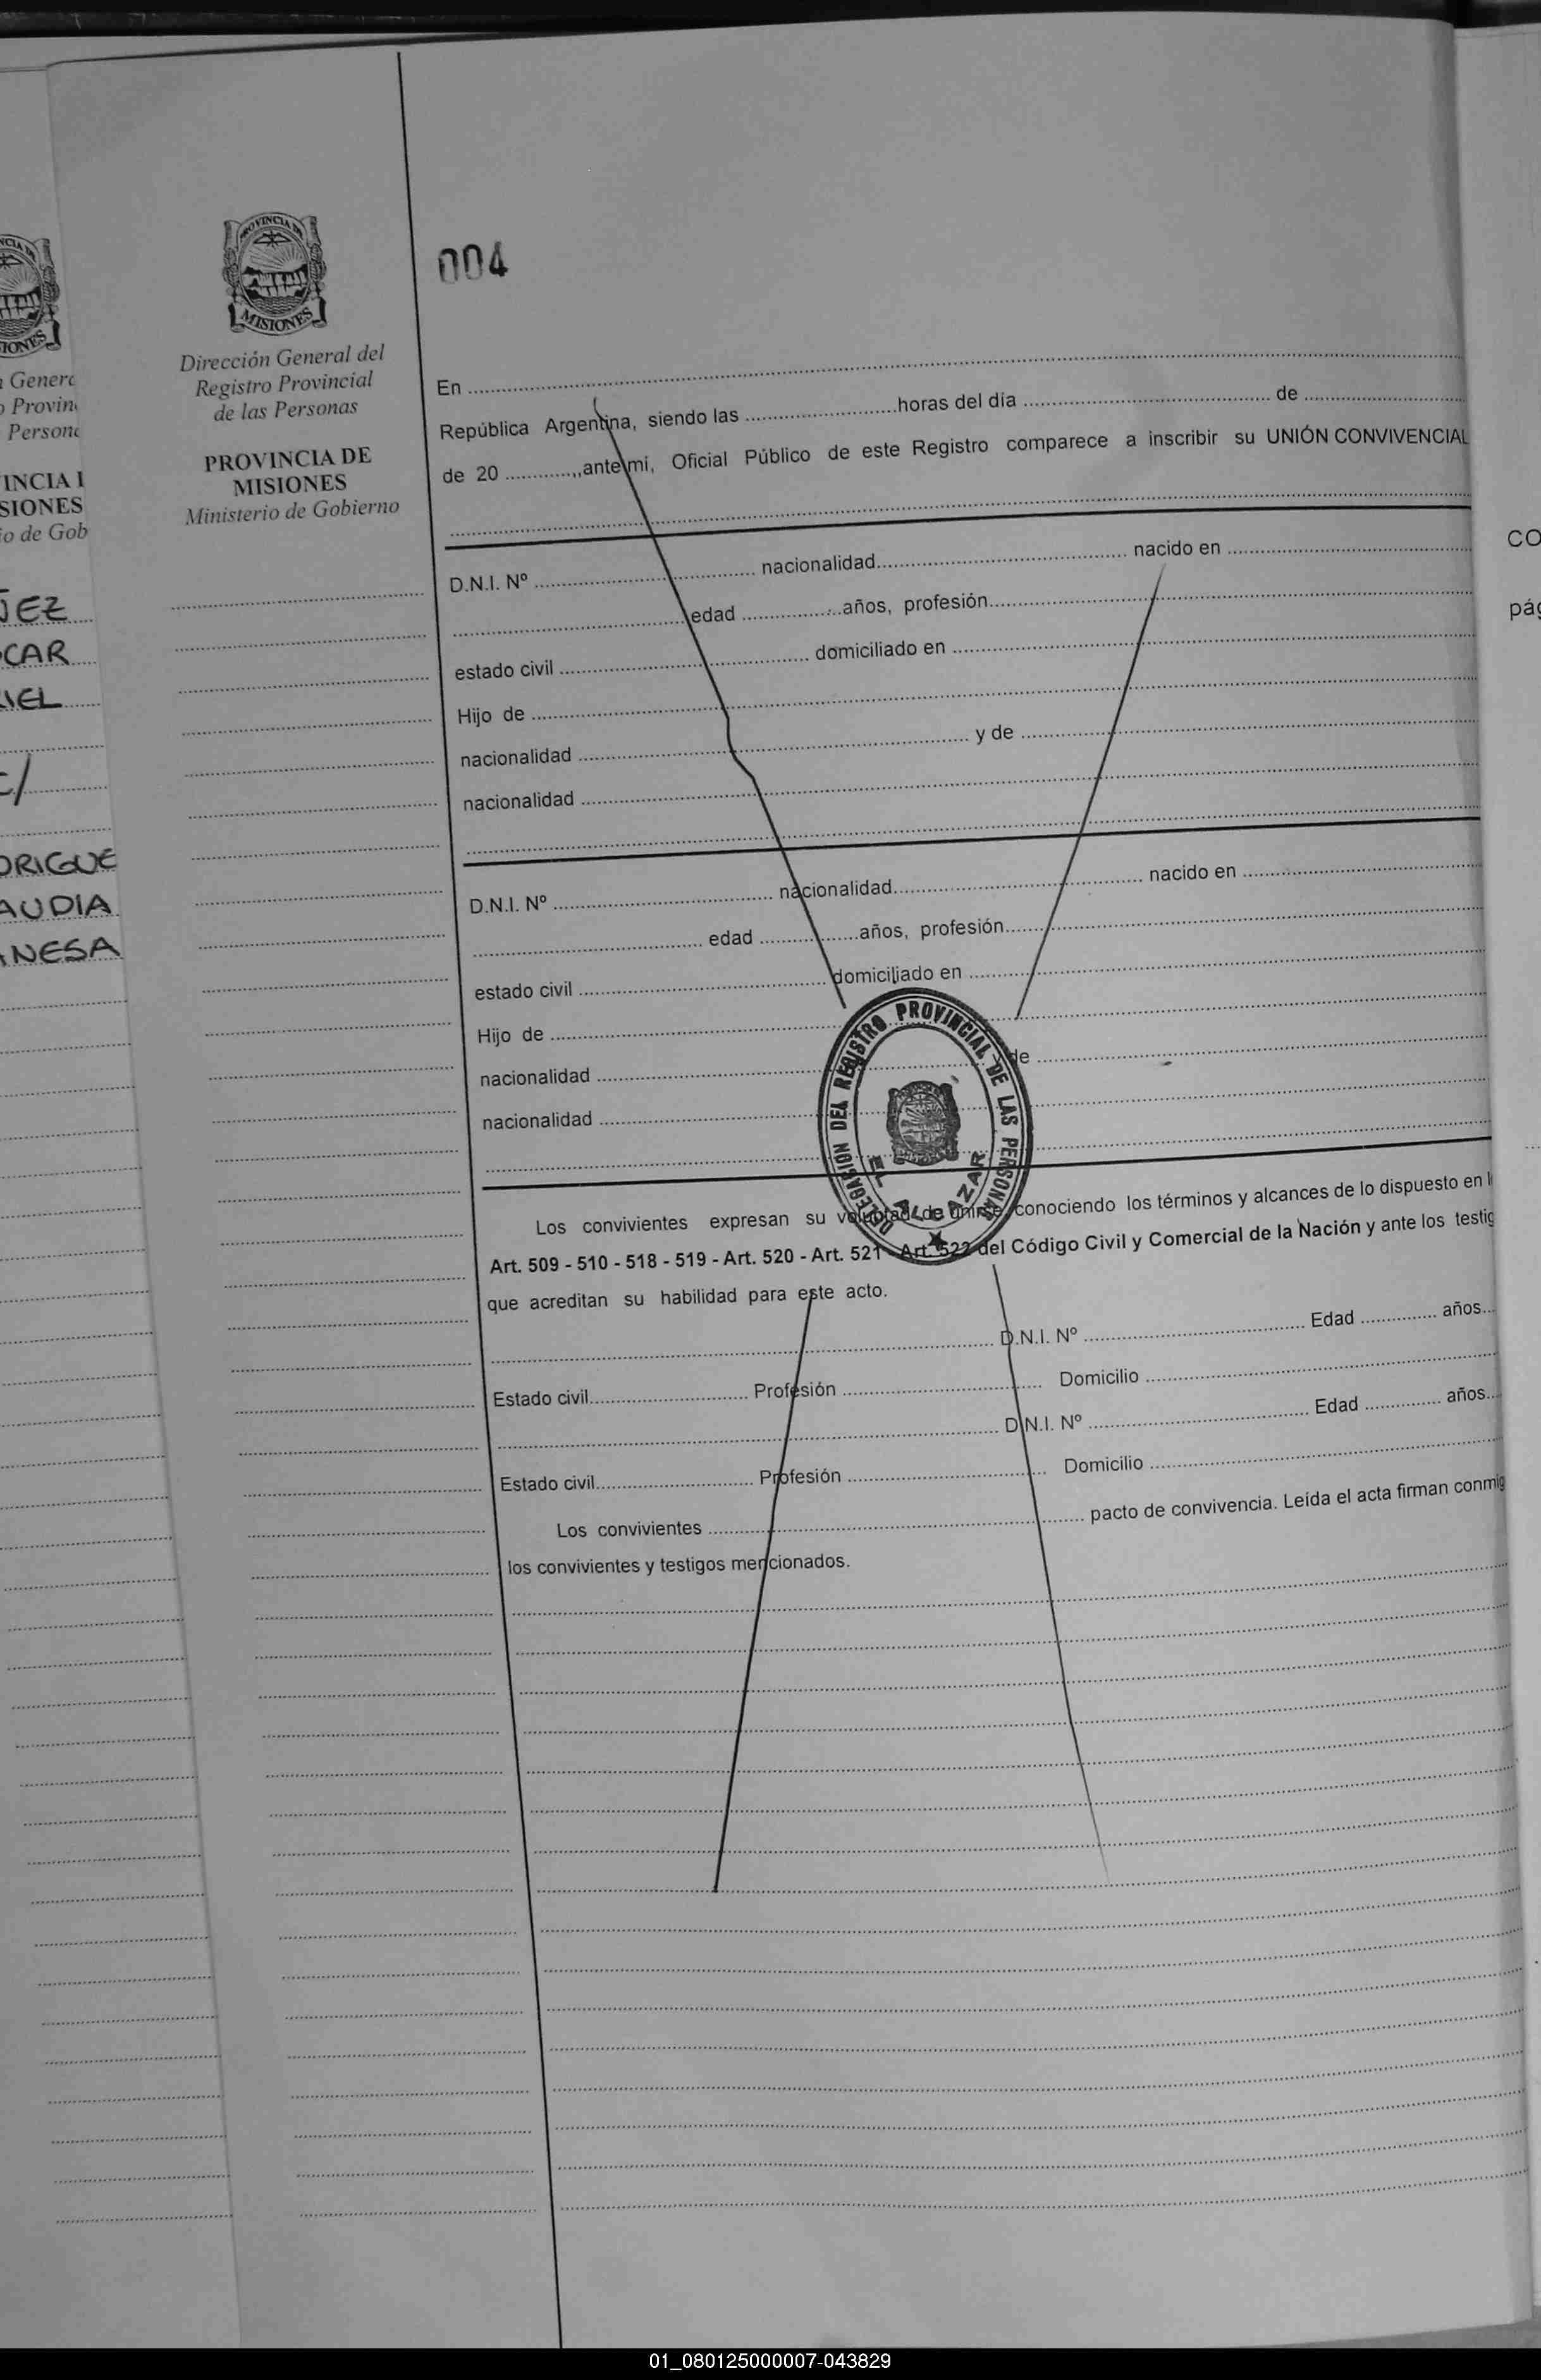 PROVINCIA DE
MISIONES
Dirección General del
Registro Provincial
de las Personas
PROVINCIA DE
MISIONES
Ministerio de Gobierno
NCIA DE
IONES
Genera
Provin
Persona
VINCIA
SIONES
io de Gob
ÑEZ
CAR
IEL
C/
DRIGUE
AUDIA
NESA
004
En
República Argentina, siendo las horas del día de
de 20 ,,ante mí, Oficial Público de este Registro comparece a inscribir su UNIÓN CONVIVENCIAL
D.N.I. Nº nacionalidad nacido en
edad años, profesión
estado civil domiciliado en
Hijo de
nacionalidad y de
nacionalidad
D.N.I. Nº nacionalidad nacido en
edad años, profesión
estado civil domiciliado en
Hijo de
nacionalidad y de
nacionalidad
DELEGACION DEL REGISTRO PROVINCIAL DE LAS PERSONAS
EL ALCAZAR
Los convivientes expresan su voluntad de unirse, conociendo los términos y alcances de lo dispuesto en l
Art. 509 - 510 - 518 - 519 - Art. 520 - Art. 521 - Art. 522 del Código Civil y Comercial de la Nación y ante los testig
que acreditan su habilidad para este acto.
D.N.I. Nº Edad años
Estado civil Profesión Domicilio
D.N.I. Nº Edad años
Estado civil Profesión Domicilio
Los convivientes pacto de convivencia. Leída el acta firman conmig
los convivientes y testigos mencionados.
CO
pág
01_080125000007-043829